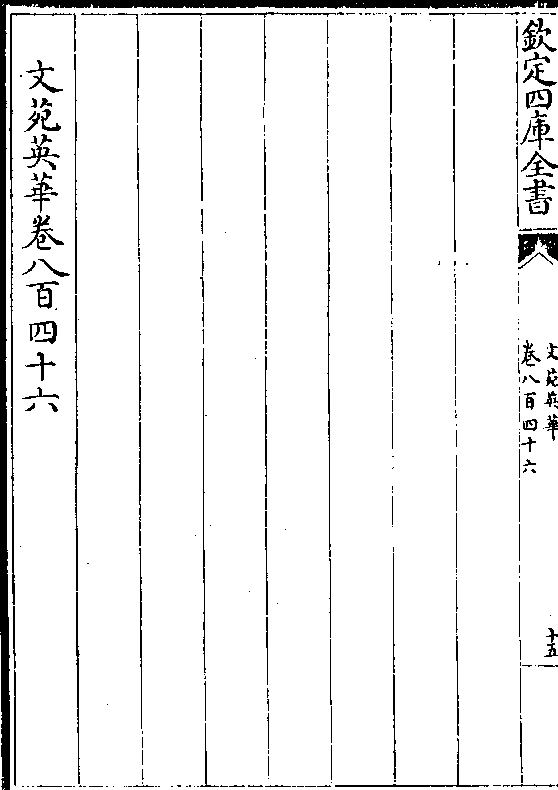 欽定四庫全書
文苑英華
卷八百四十六
十五
文苑英華卷八百四十六